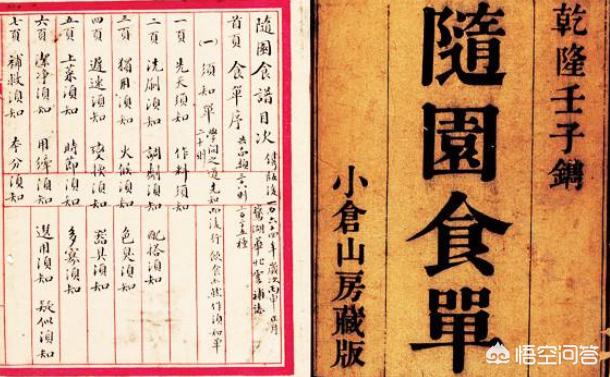 乾隆壬子鐫
隨園食單
小倉山房藏版
隨園食譜目次
首頁 食單序
(一) 須知單
二十則
學問之道先知而後行飲食亦然作須知單
一頁 先天須知 作料須知
二頁 洗刷須知 調劑須知 配搭須知
三頁 獨用須知 火候須知 色臭須知
四頁 遲速須知 變換須知 器具須知
五頁 上菜須知 時節須知 多寡須知
六頁 潔淨須知 用縴須知 選用須知 疑似須知
七頁 補救須知 本分須知
悟空问答